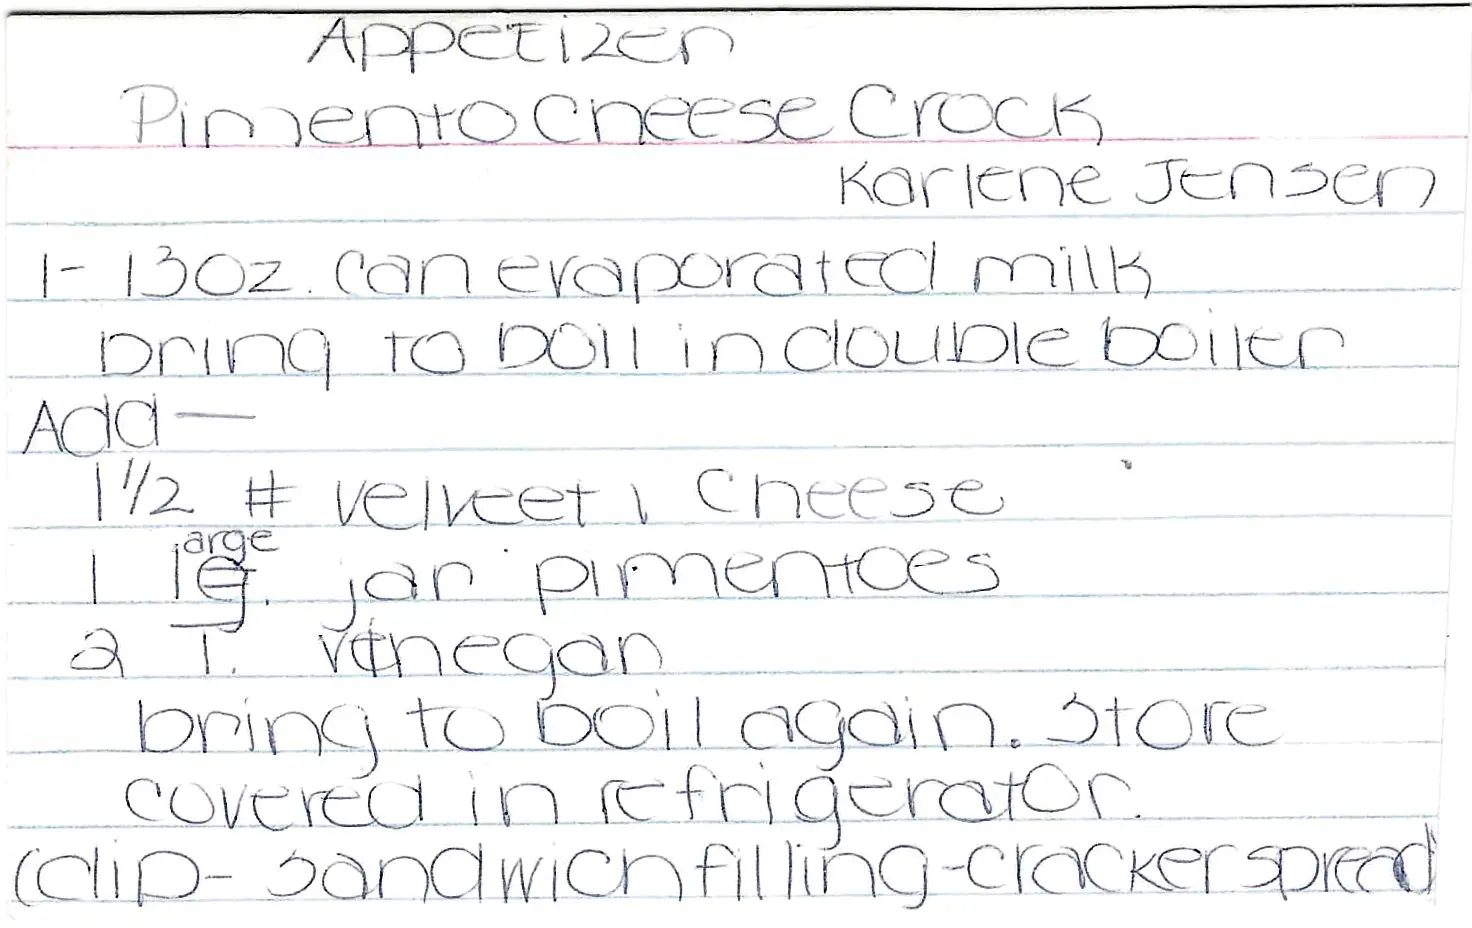 Appetizer
Pimento Cheese Crock
Karlene Jensen
1- 13oz. can evaporated milk
bring to boil in double boiler
Add —
1 1/2 # velveeti cheese
1 large jar pimentoes
2 T. vinegar
bring to boil again. Store
covered in refrigerator.
(dip- sandwich filling-cracker spread